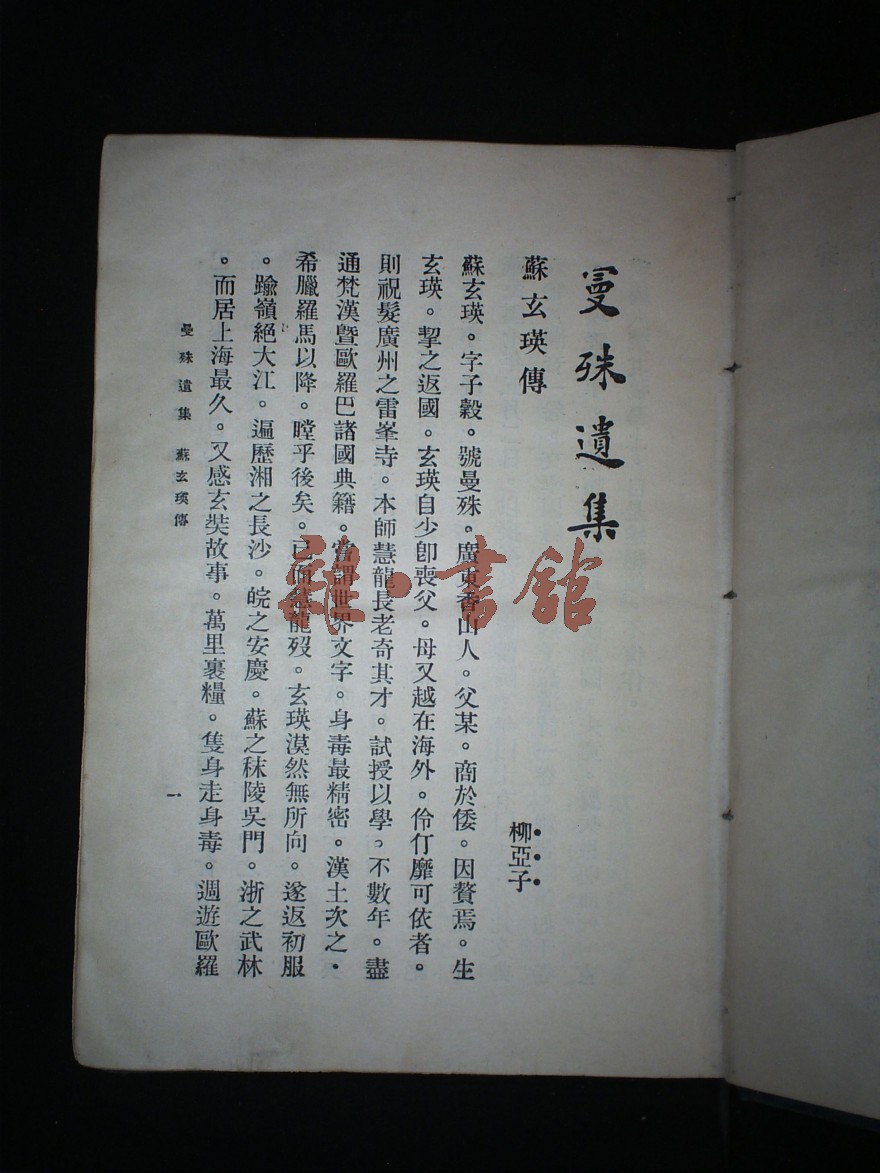 曼殊遺集
蘇玄瑛傳
柳亞子
蘇玄瑛。字子穀。號曼殊。廣東香山人。父某。商於倭。因贅焉。生
玄瑛。挈之返國。玄瑛自少卽喪父。母又越在海外。伶仃靡可依者。
則祝髮廣州之雷峯寺。本師慧龍長老奇其才。試授以學。不數年。盡
通梵漢暨歐羅巴諸國典籍。嘗謂世界文字。身毒最精密。漢土次之。
希臘羅馬以降。瞠乎後矣。已而慧龍歿。玄瑛漠然無所向。遂返初服
。踰嶺絕大江。遍歷湘之長沙。皖之安慶。蘇之秣陵吳門。浙之武林
。而居上海最久。又感玄奘故事。萬里裹糧。隻身走身毒。週遊歐羅
曼殊遺集 蘇玄瑛傳
一
雜·書館